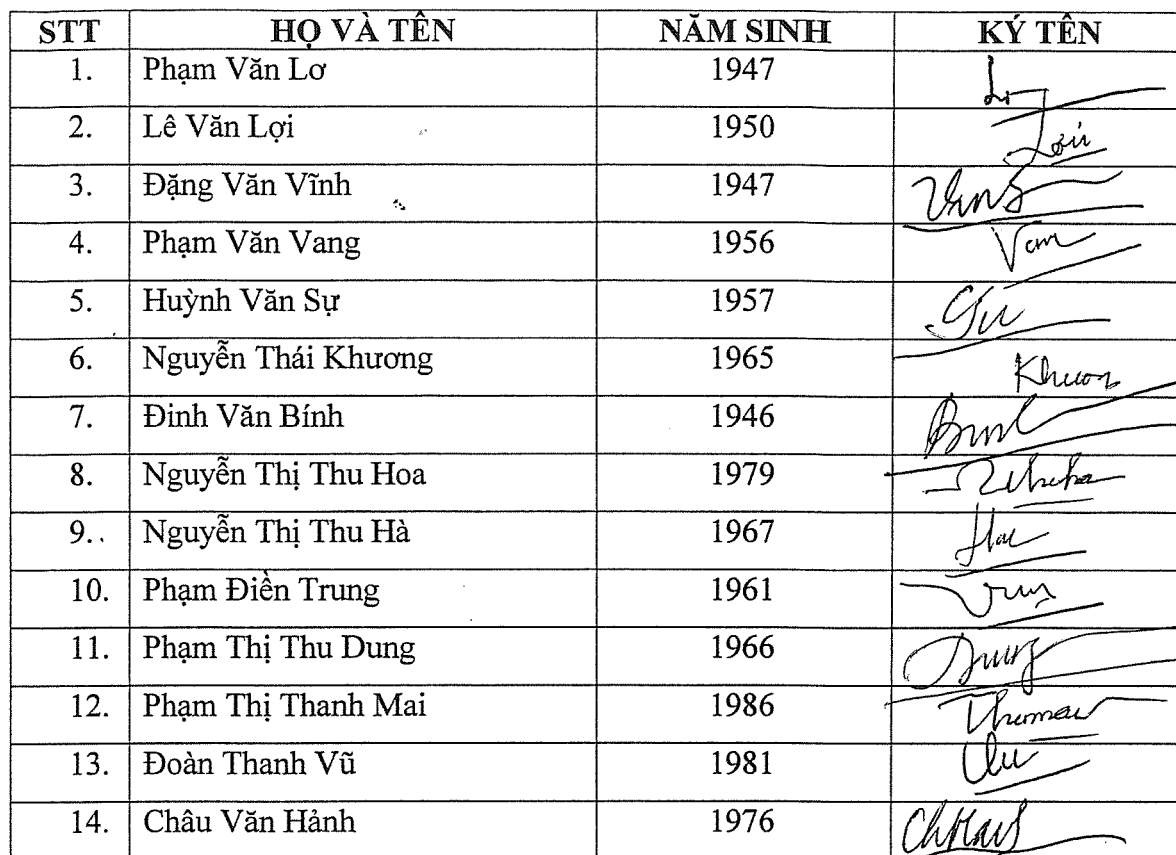 STT HỌ VÀ TÊN NĂM SINH KÝ TÊN
1. Phạm Văn Lơ 1947
2. Lê Văn Lợi 1950
3. Đặng Văn Vĩnh 1947
4. Phạm Văn Vang 1956
5. Huỳnh Văn Sự 1957
6. Nguyễn Thái Khương 1965 Khuon
7. Đinh Văn Bính 1946
8. Nguyễn Thị Thu Hoa 1979
9. Nguyễn Thị Thu Hà 1967
10. Phạm Điền Trung 1961
11. Phạm Thị Thu Dung 1966 Dung
12. Phạm Thị Thanh Mai 1986
13. Đoàn Thanh Vũ 1981
14. Châu Văn Hảnh 1976